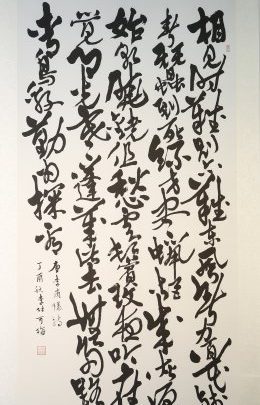 相見時難別亦難東風無力百花殘
春蠶到死絲方盡蠟炬成灰淚
始乾曉鏡但愁雲鬢改夜吟應
覺月光寒蓬萊此去無多路
青鳥殷勤為探看
唐李商隱詩
丁酉秋李